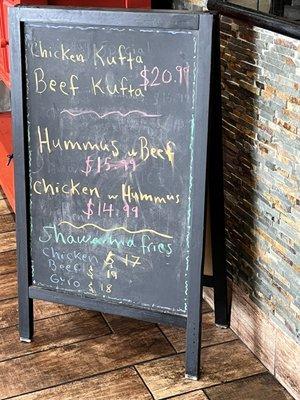 Chicken Kufta
Beef Kufta $20.99
Hummus w Beef
$15.99
chicken w Hummus
$14.99
shawarma fries
Chicken $ 17
Beef $ 19
Gyro $ 18